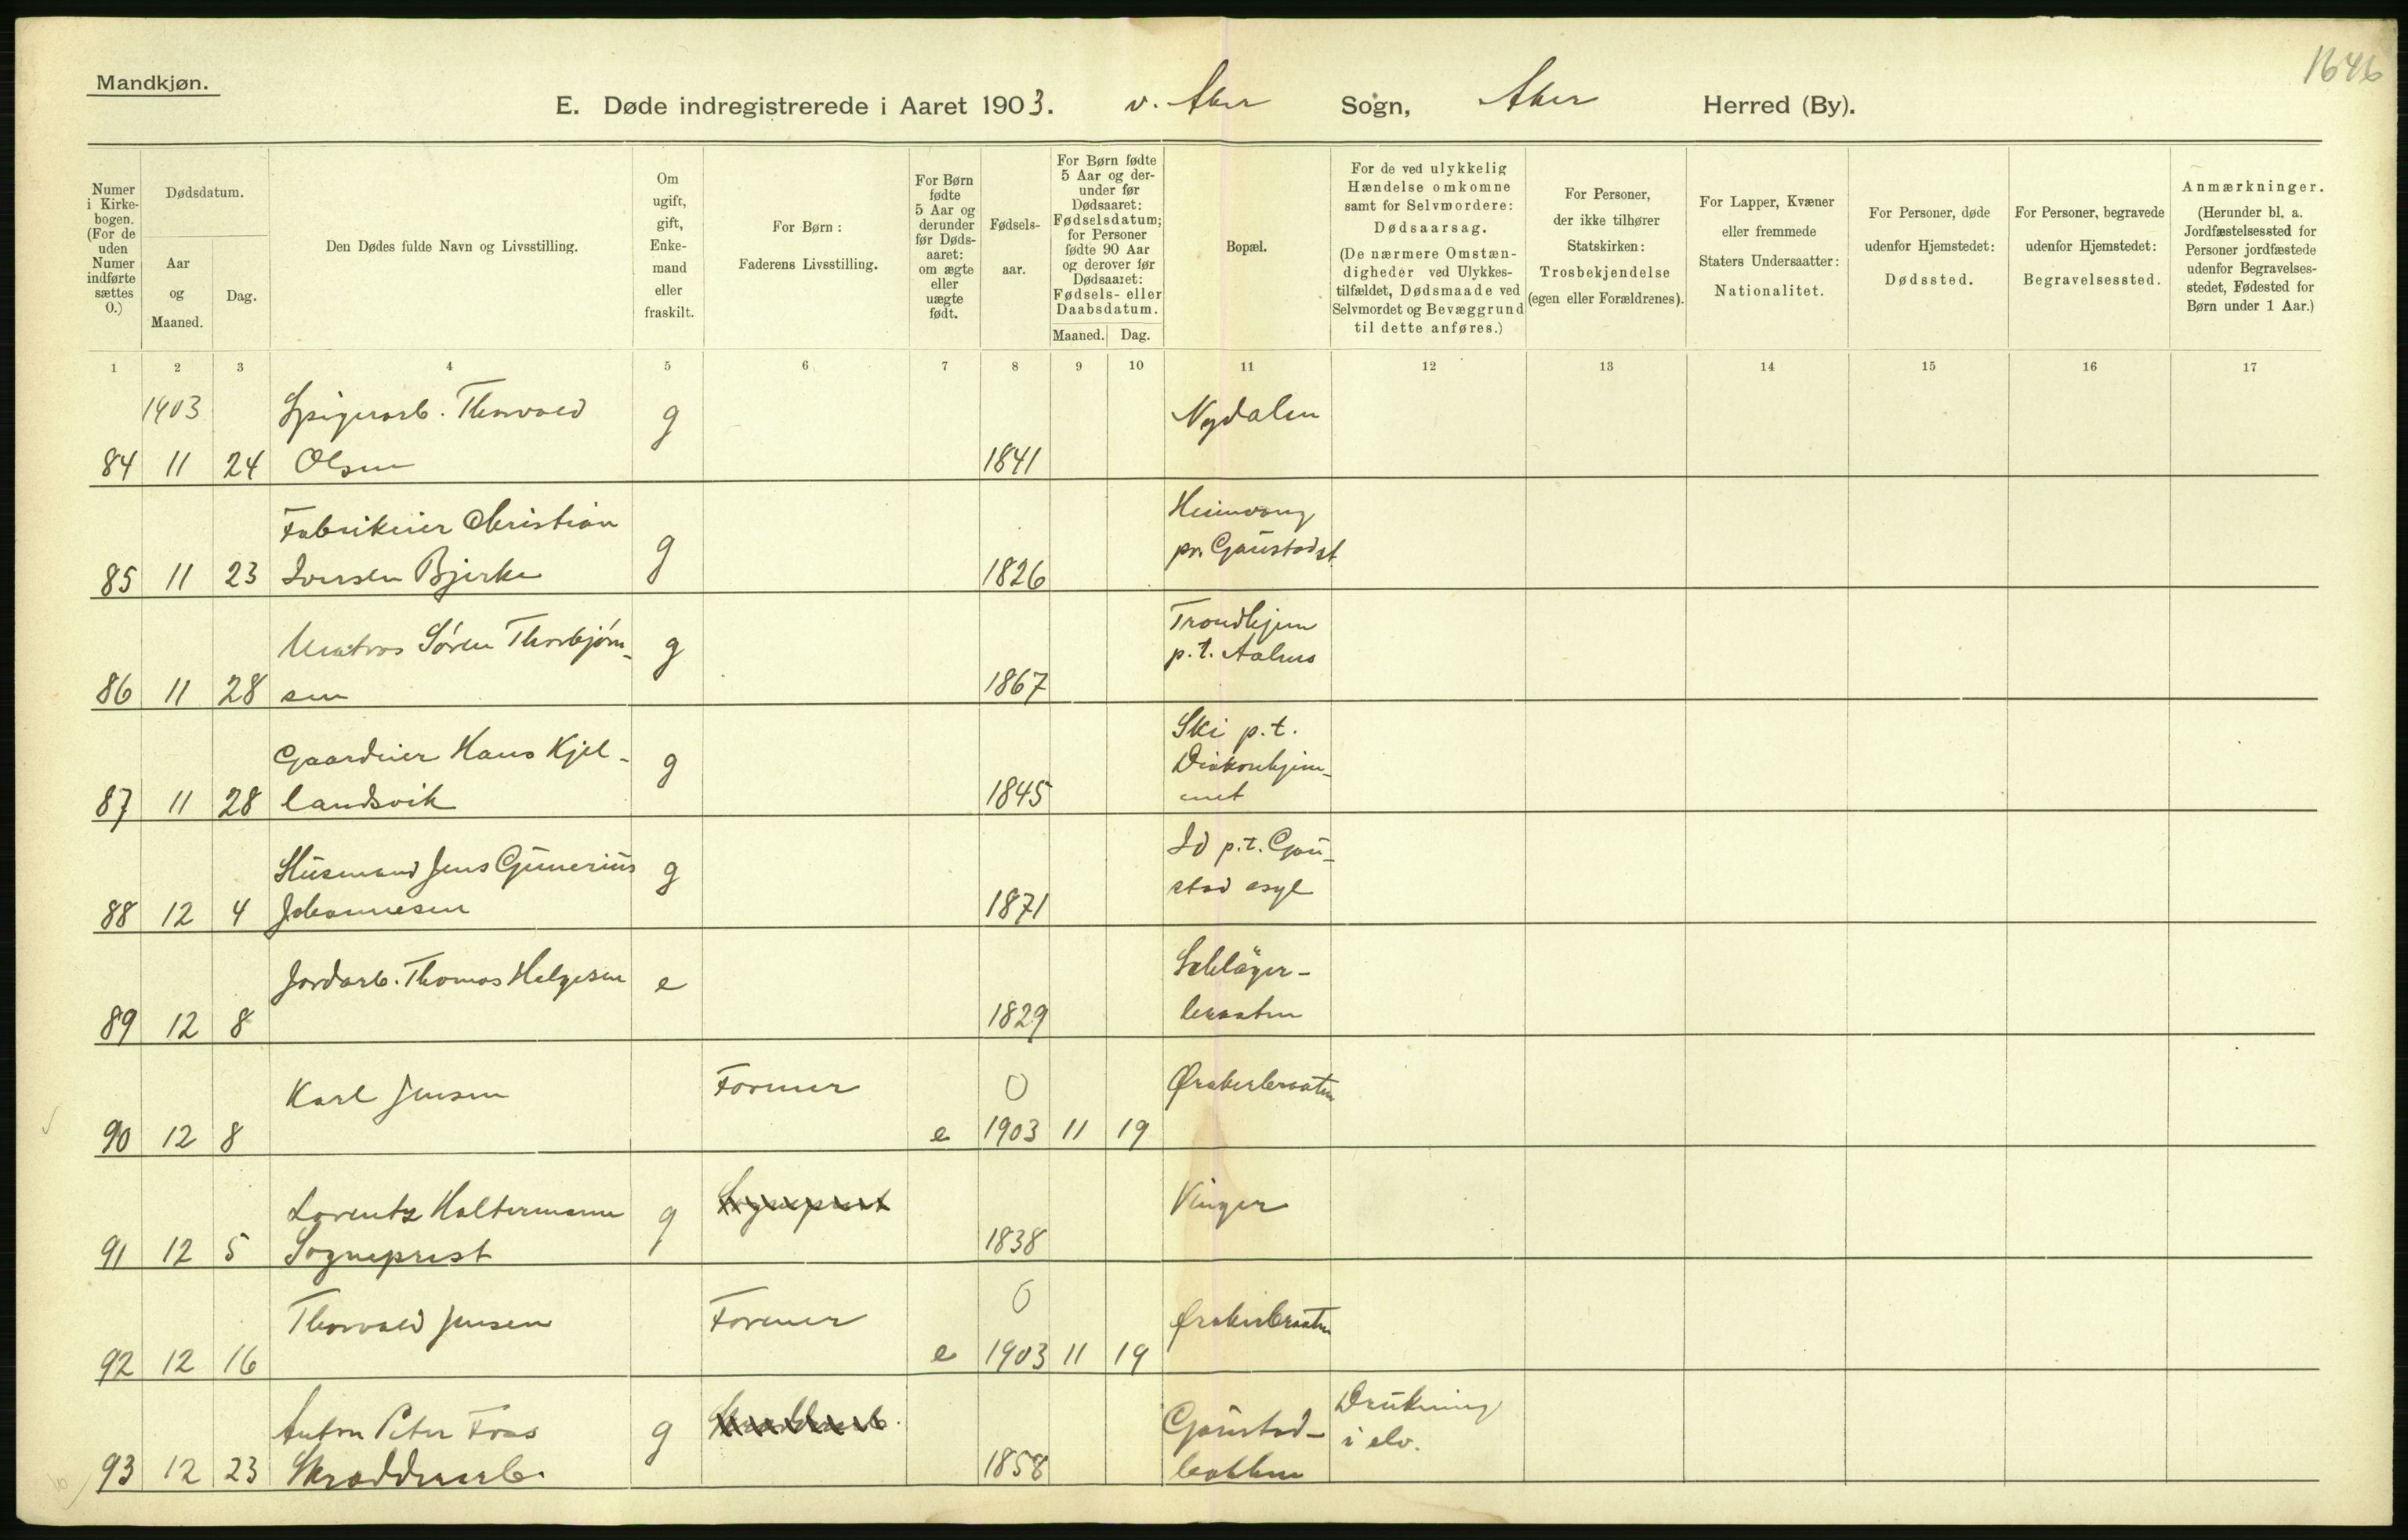 1646
Mandkjøn.
E. Døde indregistrerede i Aaret 1903. v. Aker Sogn, Aker Herred (By).
Numer i Kirke-bogen. (For de uden Numer indførte sættes 0.)
Dødsdatum.
Aar og Maaned.
Dag.
Den Dødes fulde Navn og Livsstilling.
Om ugift, gift, Enke-mand eller fraskilt.
For Børn:
Faderens Livsstilling.
For Børn fødte 5 Aar og derunder før Døds-aaret: om ægte eller uægte født.
Fødsels-aar.
For Børn fødte 5 Aar og der-under før Dødsaaret: Fødselsdatum; for Personer fødte 90 Aar og derover før Dødsaaret: Fødsels- eller Daabsdatum.
Maaned. Dag.
Bopæl.
For de ved ulykkelig Hændelse omkomne samt for Selvmordere: Dødsaarsag. (De nærmere Omstæn-digheder ved Ulykkes-tilfældet, Dødsmaade ved Selvmordet og Bevæggrund til dette anføres.)
For Personer, der ikke tilhører Statskirken: Trosbekjendelse (egen eller Forældrenes).
For Lapper, Kvæner eller fremmede Staters Undersaatter: Nationalitet.
For Personer, døde udenfor Hjemstedet: Dødssted.
For Personer, begravede udenfor Hjemstedet: Begravelsessted.
Anmærkninger. (Herunder bl. a. Jordfæstelsessted for Personer jordfæstede udenfor Begravelses-stedet, Fødested for Børn under 1 Aar.)
1 2 3 4 5 6 7 8 9 10 11 12 13 14 15 16 17
1903 Spigerarb. Thorvald g Nydalen
84 11 24 Olsen 1841
Fabrikeier Christian g Heimvang
pr. Gaustad st.
85 11 23 Iversen Bjerke 1826
Matros Søren Thorbjørn- g Trondhjem
p.t. Aakers
86 11 28 sen 1867
Gaardeier Hans Kjel- g Ski p.t.
Diakonhjem-
87 11 28 landsvik 1845 met
Husmand Jens Gunerius g Id p.t. Gau-
stad asyl
88 12 4 Johannesen 1871
Jordarb. Thomas Helgesen e Schläger-
89 12 8 1829 braaten
Karl Jensen Former 0 Ørakerbraaten
90 12 8 e 1903 11 19
Lorentz Haltermann g Sogneprest Vinger
91 12 5 Sogneprest 1838
Thorvald Jensen Former 0 Ørakerbraaten
92 12 16 e 1903 11 19
Anton Peter Foss g Gaustad- Drukning
i elv.
93 12 23 Skræddearb. 1858 bakken